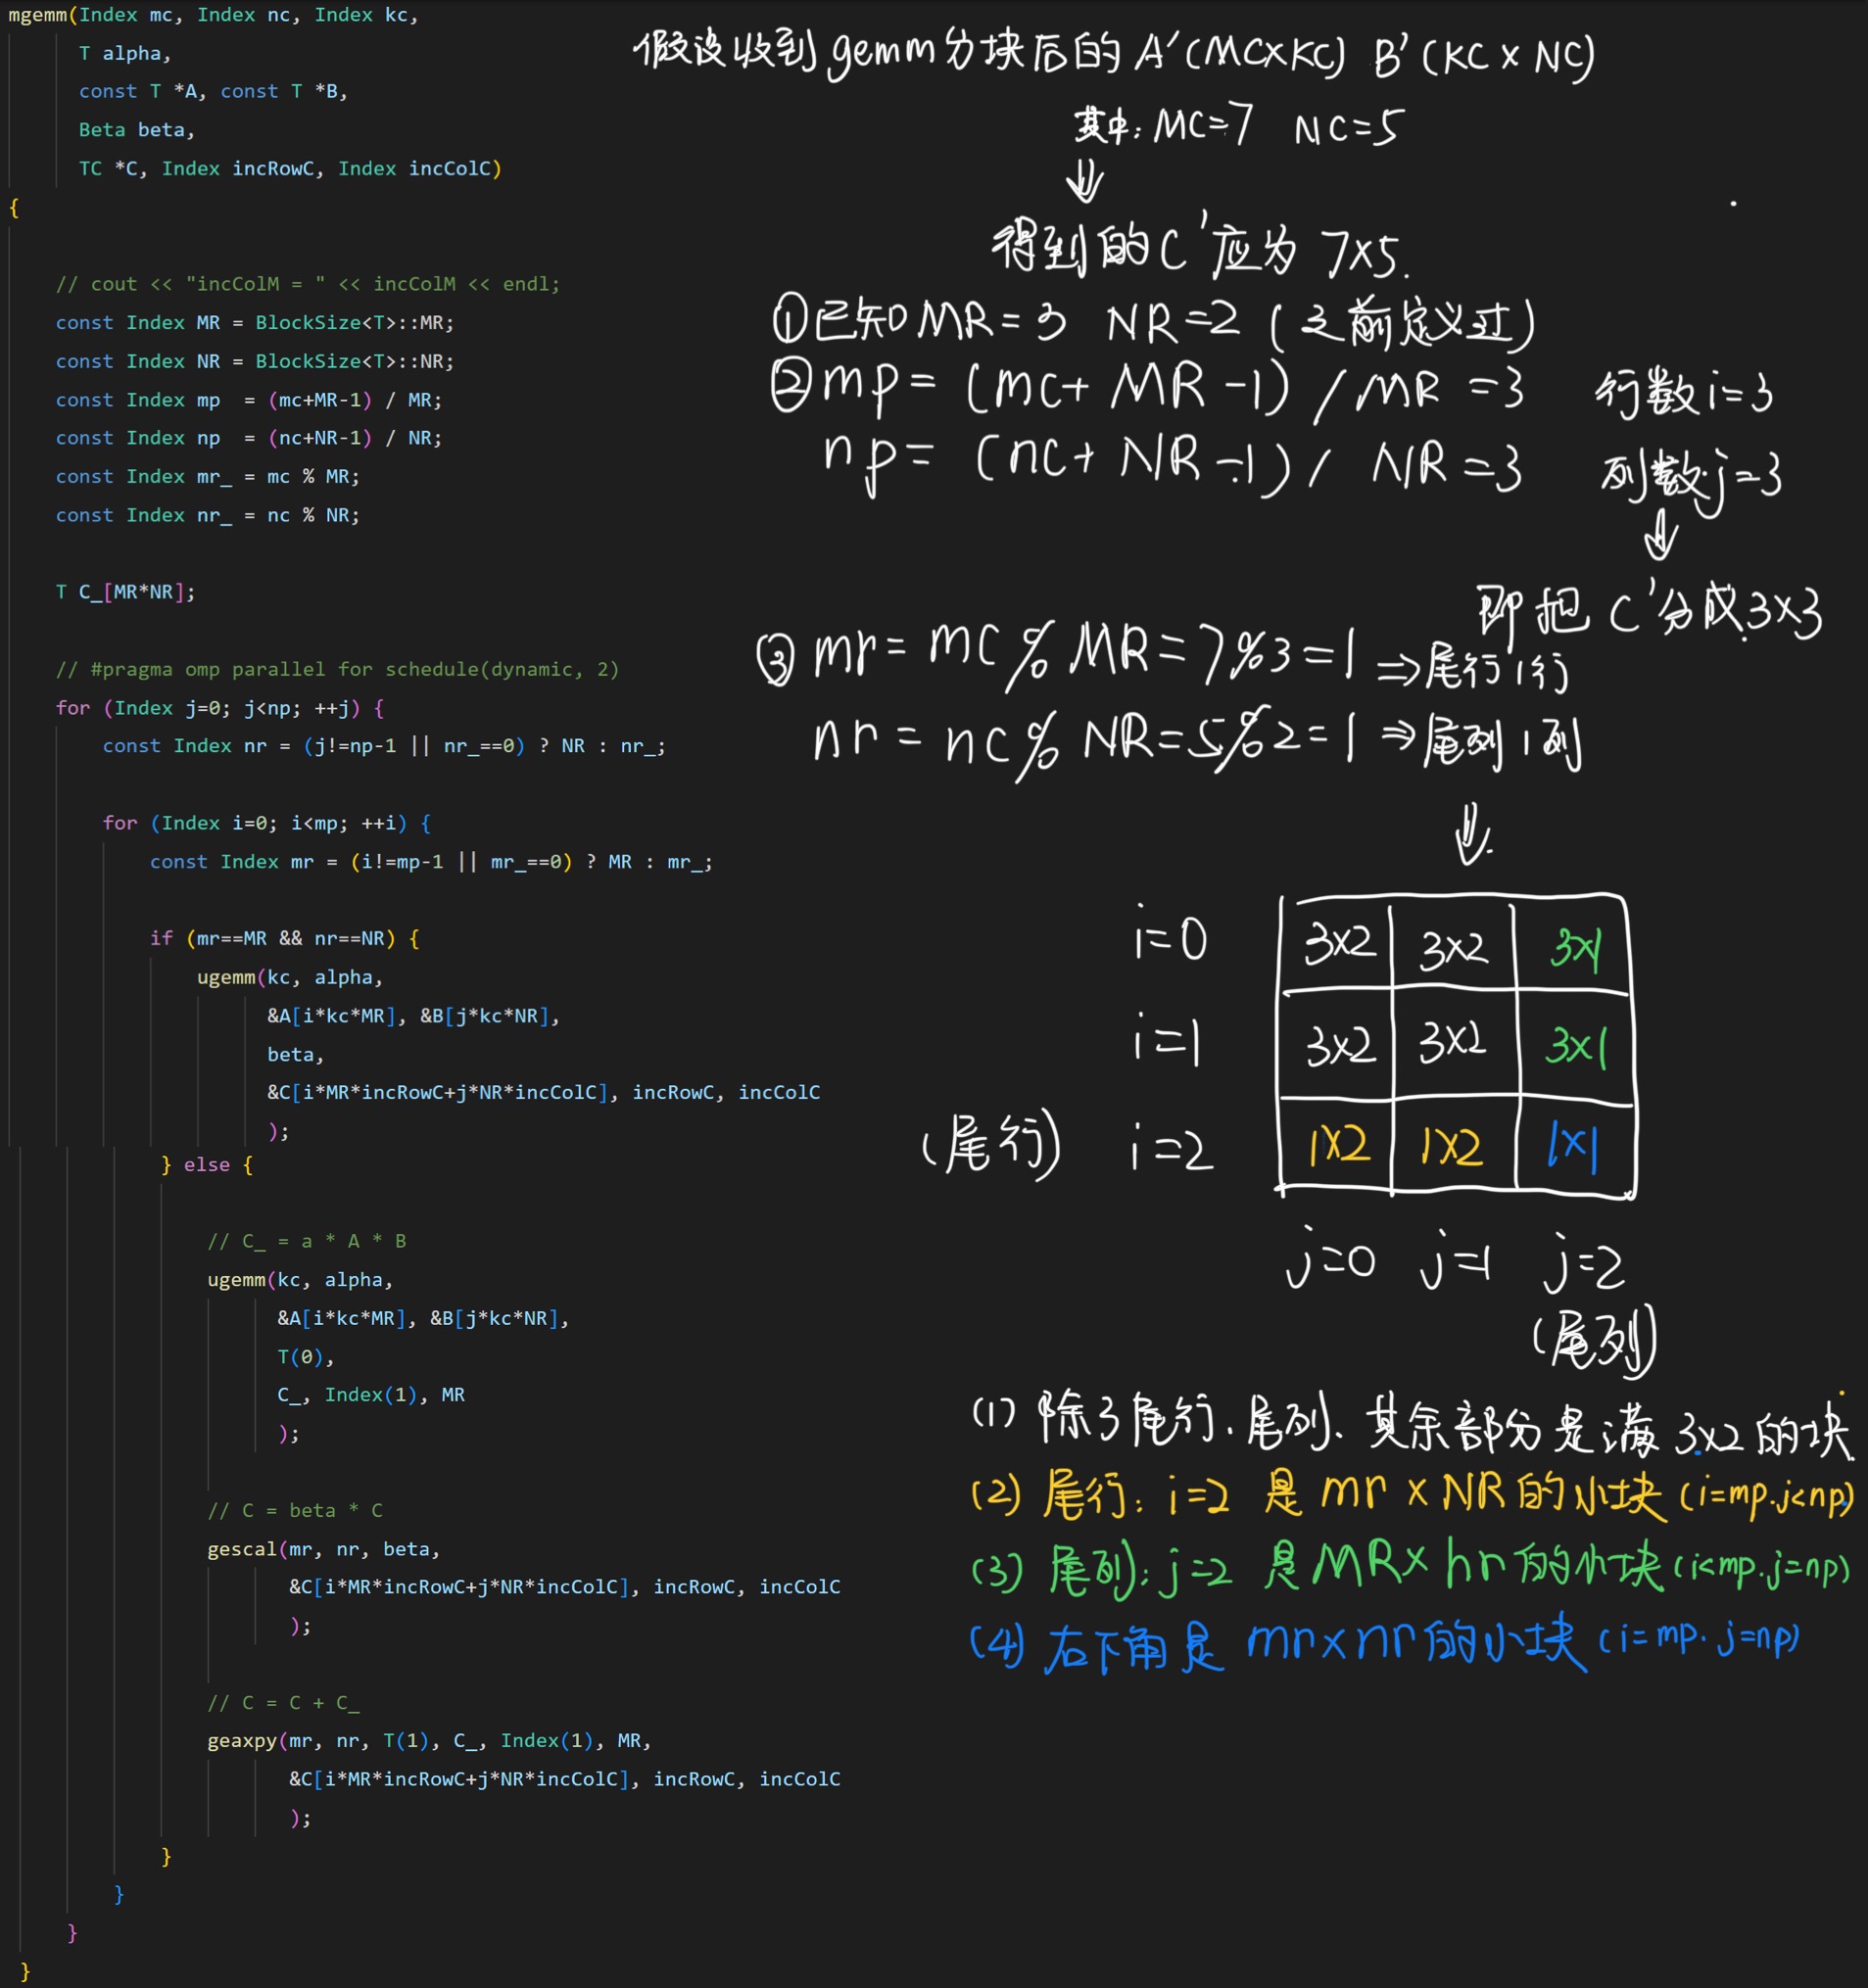 mgemm(Index mc, Index nc, Index kc,
T alpha,
const T *A, const T *B,
Beta beta,
TC *C, Index incRowC, Index incColC)
{
// cout << "incColM = " << incColM << endl;
const Index MR = BlockSize<T>::MR;
const Index NR = BlockSize<T>::NR;
const Index mp  = (mc+MR-1) / MR;
const Index np  = (nc+NR-1) / NR;
const Index mr_ = mc % MR;
const Index nr_ = nc % NR;
T C_[MR*NR];
// #pragma omp parallel for schedule(dynamic, 2)
for (Index j=0; j<np; ++j) {
const Index nr = (j!=np-1 || nr_==0) ? NR : nr_;
for (Index i=0; i<mp; ++i) {
const Index mr = (i!=mp-1 || mr_==0) ? MR : mr_;
if (mr==MR && nr==NR) {
ugemm(kc, alpha,
&A[i*kc*MR], &B[j*kc*NR],
beta,
&C[i*MR*incRowC+j*NR*incColC], incRowC, incColC
);
} else {
// C_ = a * A * B
ugemm(kc, alpha,
&A[i*kc*MR], &B[j*kc*NR],
T(0),
C_, Index(1), MR
);
// C = beta * C
gescal(mr, nr, beta,
&C[i*MR*incRowC+j*NR*incColC], incRowC, incColC
);
// C = C + C_
geaxpy(mr, nr, T(1), C_, Index(1), MR,
&C[i*MR*incRowC+j*NR*incColC], incRowC, incColC
);
}
}
}
}
假设收到gemm分块后的 A'(MC×KC) B'(KC×NC)
其中: MC=7 NC=5
⇓
得到的C'应为 7×5.
①已知MR=3 NR=2 (之前定义过)
②mp= (mc+MR-1)/MR =3 行数i=3
np= (nc+NR-1)/NR=3 列数j=3
↓
即把C'分成3×3
③ mr=mc%MR=7%3=1 ⇒尾行1行
nr=nc%NR=5%2=1 ⇒尾列1列
⇓
i=0 3×2 3×2 3×1
i=1 3×2 3×2 3×1
(尾行) i=2 1×2 1×2 1×1
j=0 j=1 j=2
(尾列)
(1) 除了尾行.尾列、其余部分是满3×2的块
(2) 尾行: i=2 是 mr×NR的小块(i=mp.j<np)
(3) 尾列: j=2 是MR×nr的小块(i<mp.j=np)
(4) 右下角是 mr×nr的小块(i=mp.j=np)